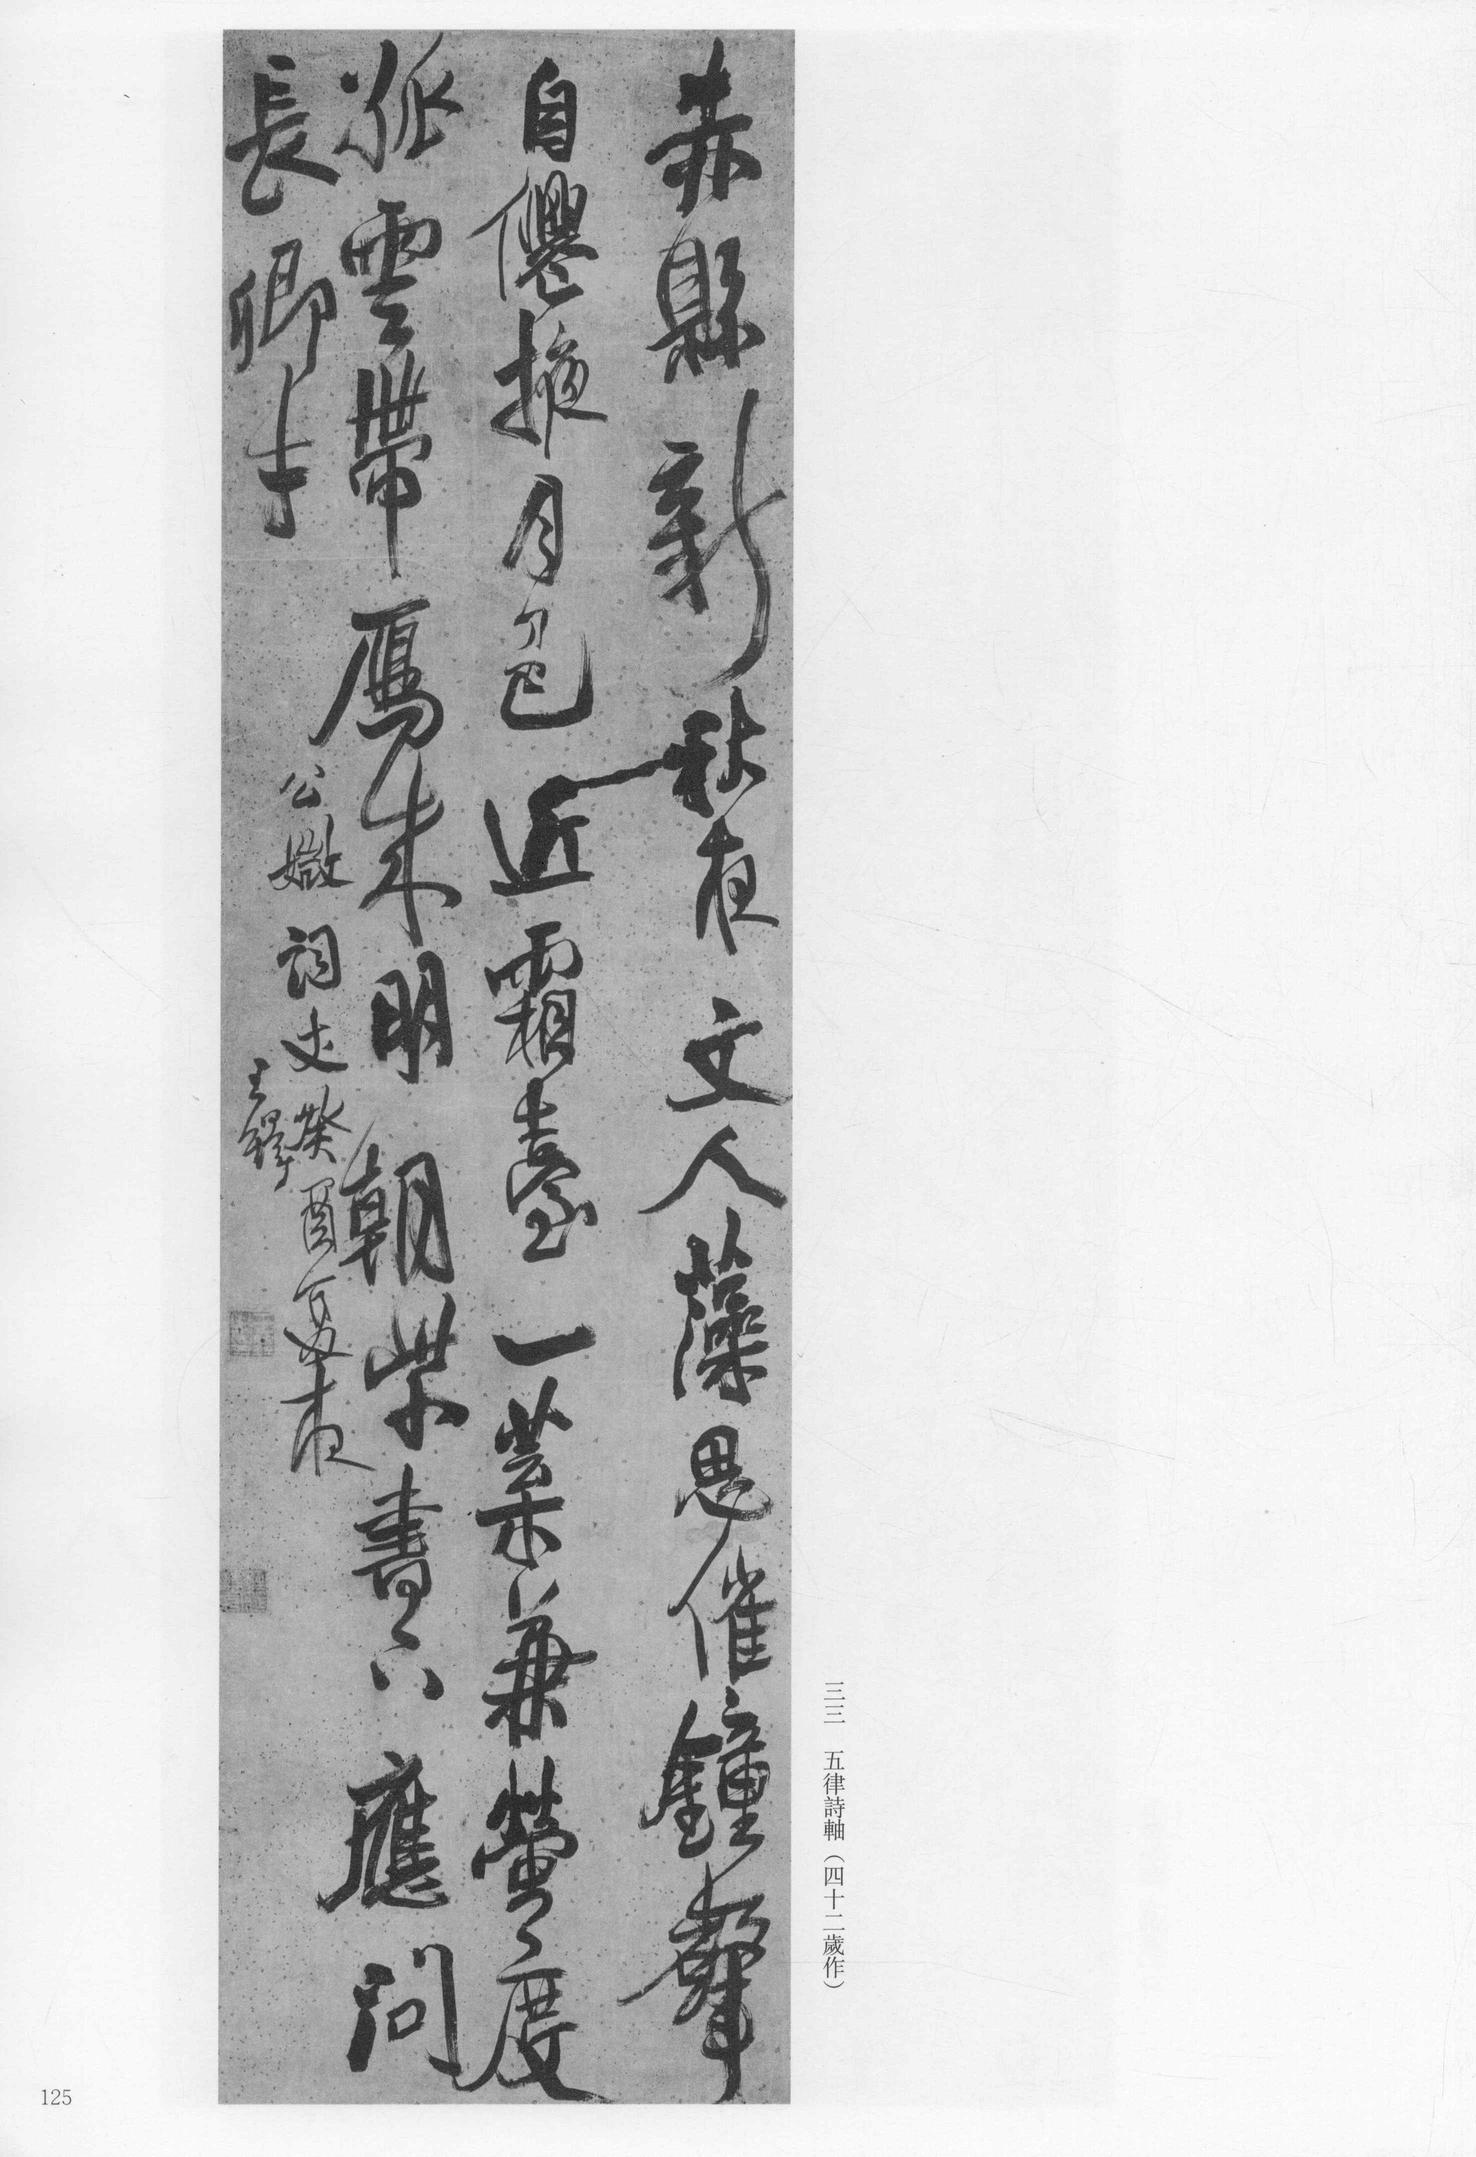 赤縣新秋夜文人藻思催鐘聲
自僊掖月色近霜臺一葉兼螢度
孤雲帶鴈來明朝紫書下應問
長卿才
公媺詞丈癸酉夏夜
王鐸
三三 五律詩軸（四十二歲作）
125